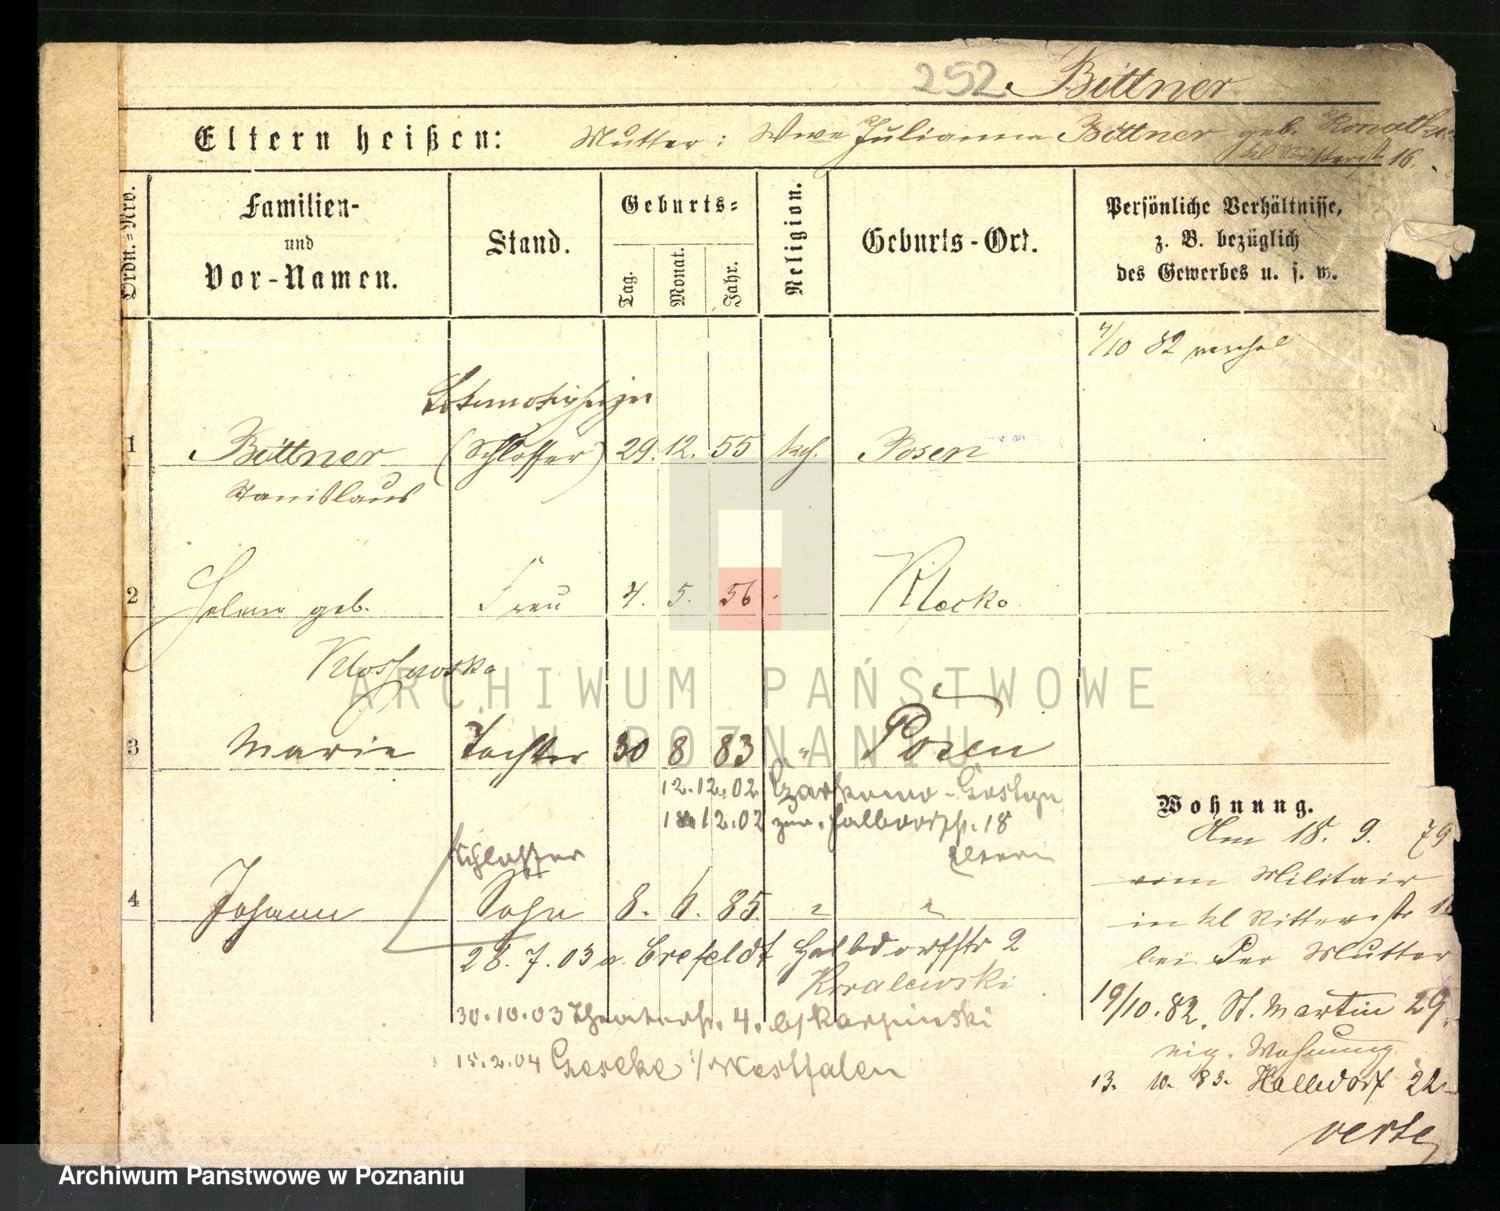 252 Bittner
Eltern heißen: Mutter: Wwe Julianna Bittner geb.
kl Ritterstr 16.
Ordn.=Nro.
Familien-
und
Vor-Namen.
Stand.
Geburts=
Tag.
Monat.
Jahr.
Religion.
Geburts-Ort.
Persönliche Verhältnisse,
z. B. bezüglich
des Gewerbes u. s. w.
/10 82
1 Bittner (Schlosser) 29. 12. 55 kth. Posen
Stanislaus
2 Helene geb. Frau 4. 5. 56 Klecko
3 Marie Tochter 30 8 83 " Posen
12.12.02 - Gostyn
12.02 zur. Halbdorfstr. 18
Eltern
Schlosser
4 Johann Sohn 8. 6. 85. " "
28. 7. 03 n. Crefeldt Halbdorfstr 2
Kowalewski
30.10.03 Theaterstr. 4. b/Karpinski
15.2.04 Geseke i/Westfalen
Wohnung.
Am 18. 9. 79
vom Militair
in kl Ritterstr 16
bei der Mutter
19/10. 82. St. Martin 29.
eig. Wohnung
13. 10. 83. Halbdorf 22
verte
ARCHIWUM PAŃSTWOWE
W POZNANIU
Archiwum Państwowe w Poznaniu